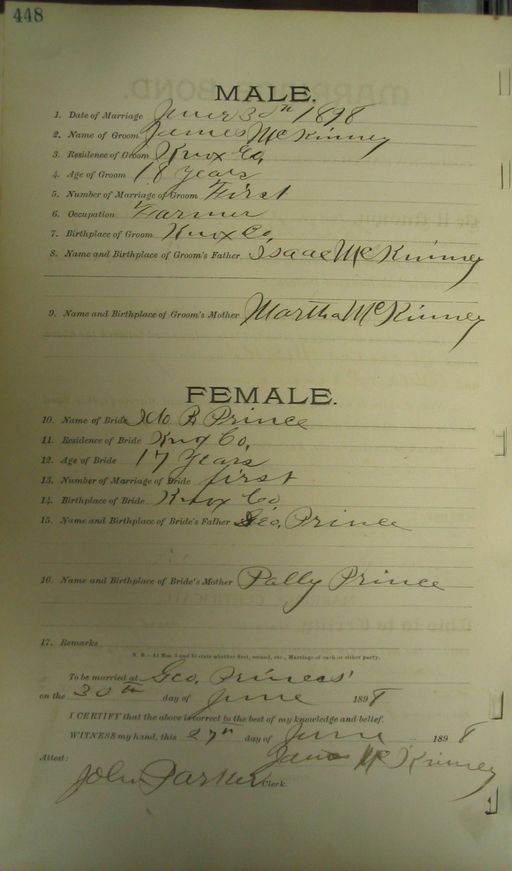 448
MALE.
1. Date of Marriage June 30th 1898
2. Name of Groom James McKinney
3. Residence of Groom Knox Co,
4. Age of Groom 18 years
5. Number of Marriage of Groom First
6. Occupation Farmer
7. Birthplace of Groom Knox Co,
8. Name and Birthplace of Groom's Father Isaac McKinney
9. Name and Birthplace of Groom's Mother Martha McKinney
FEMALE.
10. Name of Bride B Prince
11. Residence of Bride Knox Co,
12. Age of Bride 17 Years
13. Number of Marriage of Bride first
14. Birthplace of Bride Knox Co
15. Name and Birthplace of Bride's Father Geo, Prince
16. Name and Birthplace of Bride's Mother Pally Prince
17. Remarks
N. B.—At Nos. 5 and 13 state whether first, second, etc., Marriage of each or either party.
To be married at Geo, Princes'
on the 30th day of June 1898
I CERTIFY that the above is correct to the best of my knowledge and belief.
WITNESS my hand, this 27th day of June 1898
James McKinney
Attest:
John Parker Clerk.